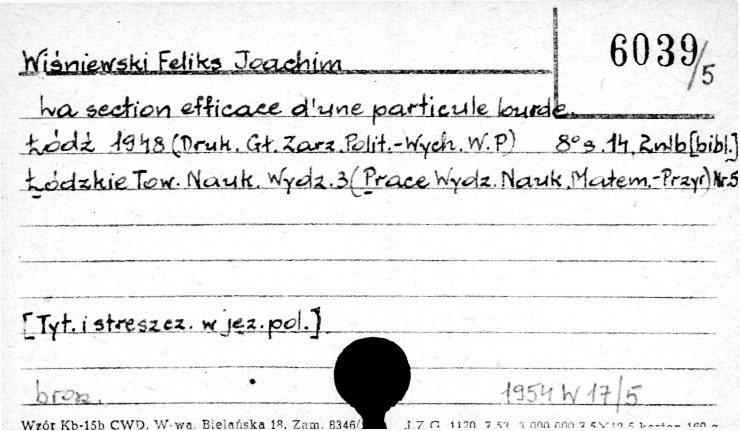 6039/5
Wiśniewski Feliks Joachim
La section efficace d'une particule lourde.
Łódź 1948 (Druk. Gł. Zarz. Polit.-Wych. W.P) 8° s. 14, 2 nlb [bibl.]
Łódzkie Tow. Nauk. Wydz. 3 (Prace Wydz. Nauk. Matem.-Przyr) Nr. 5
[Tyt. i streszcz. w jęz. pol.]
brosz. 1954 W 17/5
Wzór Kb-15b CWD, W-wa, Bielańska 18. Zam. 8346/ J.Z.G. 1120 7.53 3.000.000 7,5×12,5 karton 160 g